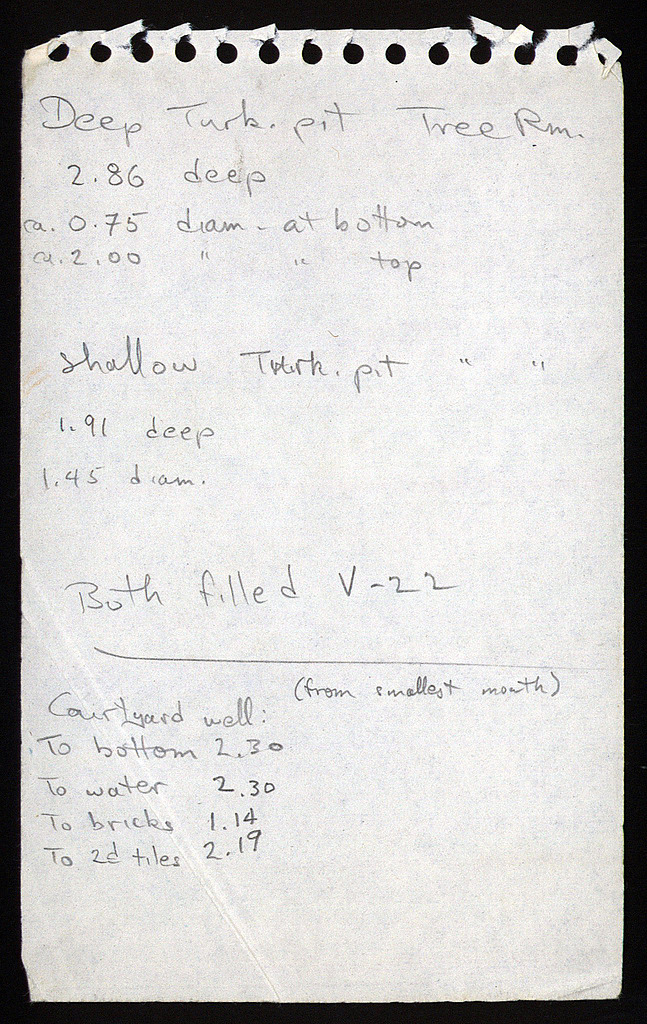 Deep Turk. pit Tree Rm.
2.86 deep
ca. 0.75 diam. at bottom
ca. 2.00 " " top
Shallow Turk. pit " "
1.91 deep
1.45 diam.
Both filled V-22
(from smallest mouth)
Courtyard well:
To bottom 2.30
To water 2.30
To bricks 1.14
To 2d tiles 2.19